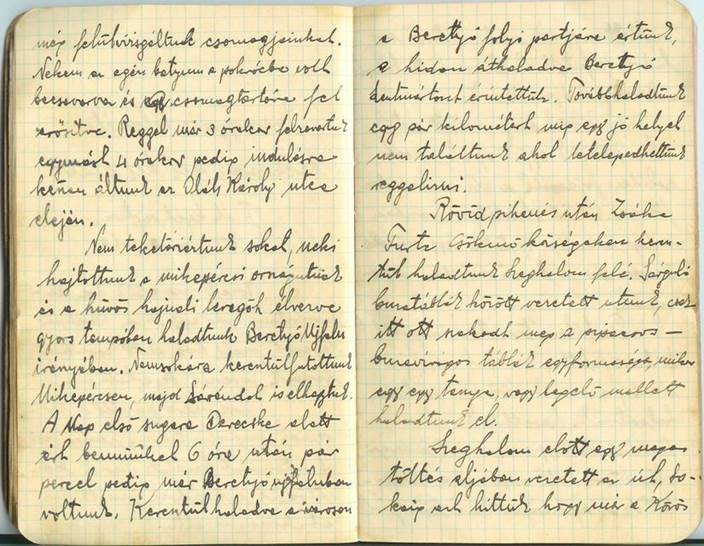 még felülvizsgáltuk csomagjainkat.
Nekem az egész batyum a pokrócba volt
becsavarva és csomagtartóra fel
erősítve. Reggel már 3 órakor felzavartuk
egymást 4 órakor pedig indulásra
készen álltunk az Oláh Károly utca
elején.
Nem teketóriáztunk sokat, neki
hajtottunk a mikepércsi országútnak
és a hűvös hajnali levegőt élvezve
gyors tempóban haladtunk Berettyó Ujfalu
irányában. Nemsokára keresztülfutottunk
Mikepércsen, majd Sárándot is elhagytuk.
A Nap első sugara Derecske alatt
ért bennünket 6 óra után pár
perccel pedig már Berettyó ujfaluban
voltunk. Keresztülhaladva a városon
a Berettyó folyó partjára értünk,
a hidon áthaladva Berettyó
szentmártont érintettük. Továbbhaladtunk
egy pár kilométert míg egy jó helyet
nem találtunk ahol letelepedhettünk
reggelizni.
Rövid pihenés után Zsáka
Furta Csökmő községeken keresz-
tül haladtunk Szeghalom felé. Sárguló
buzatáblák között vezetett utunk, csak
itt ott szakadt meg a piparos –
buzavirágos táblák egyformasága, mikor
egy egy tanya, vagy legelő mellett
haladtunk el.
Szeghalom előtt egy magas
töltés aljában vezetett az út, so-
káig azt hittük hogy már a Körös